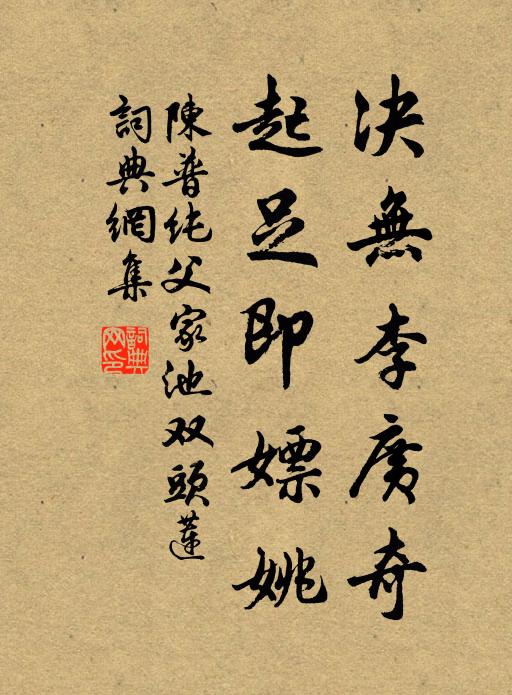 决無李廣奇
起足即嫖姚
陳普纯父家池双頭蓮
詞典網集
詞典网印